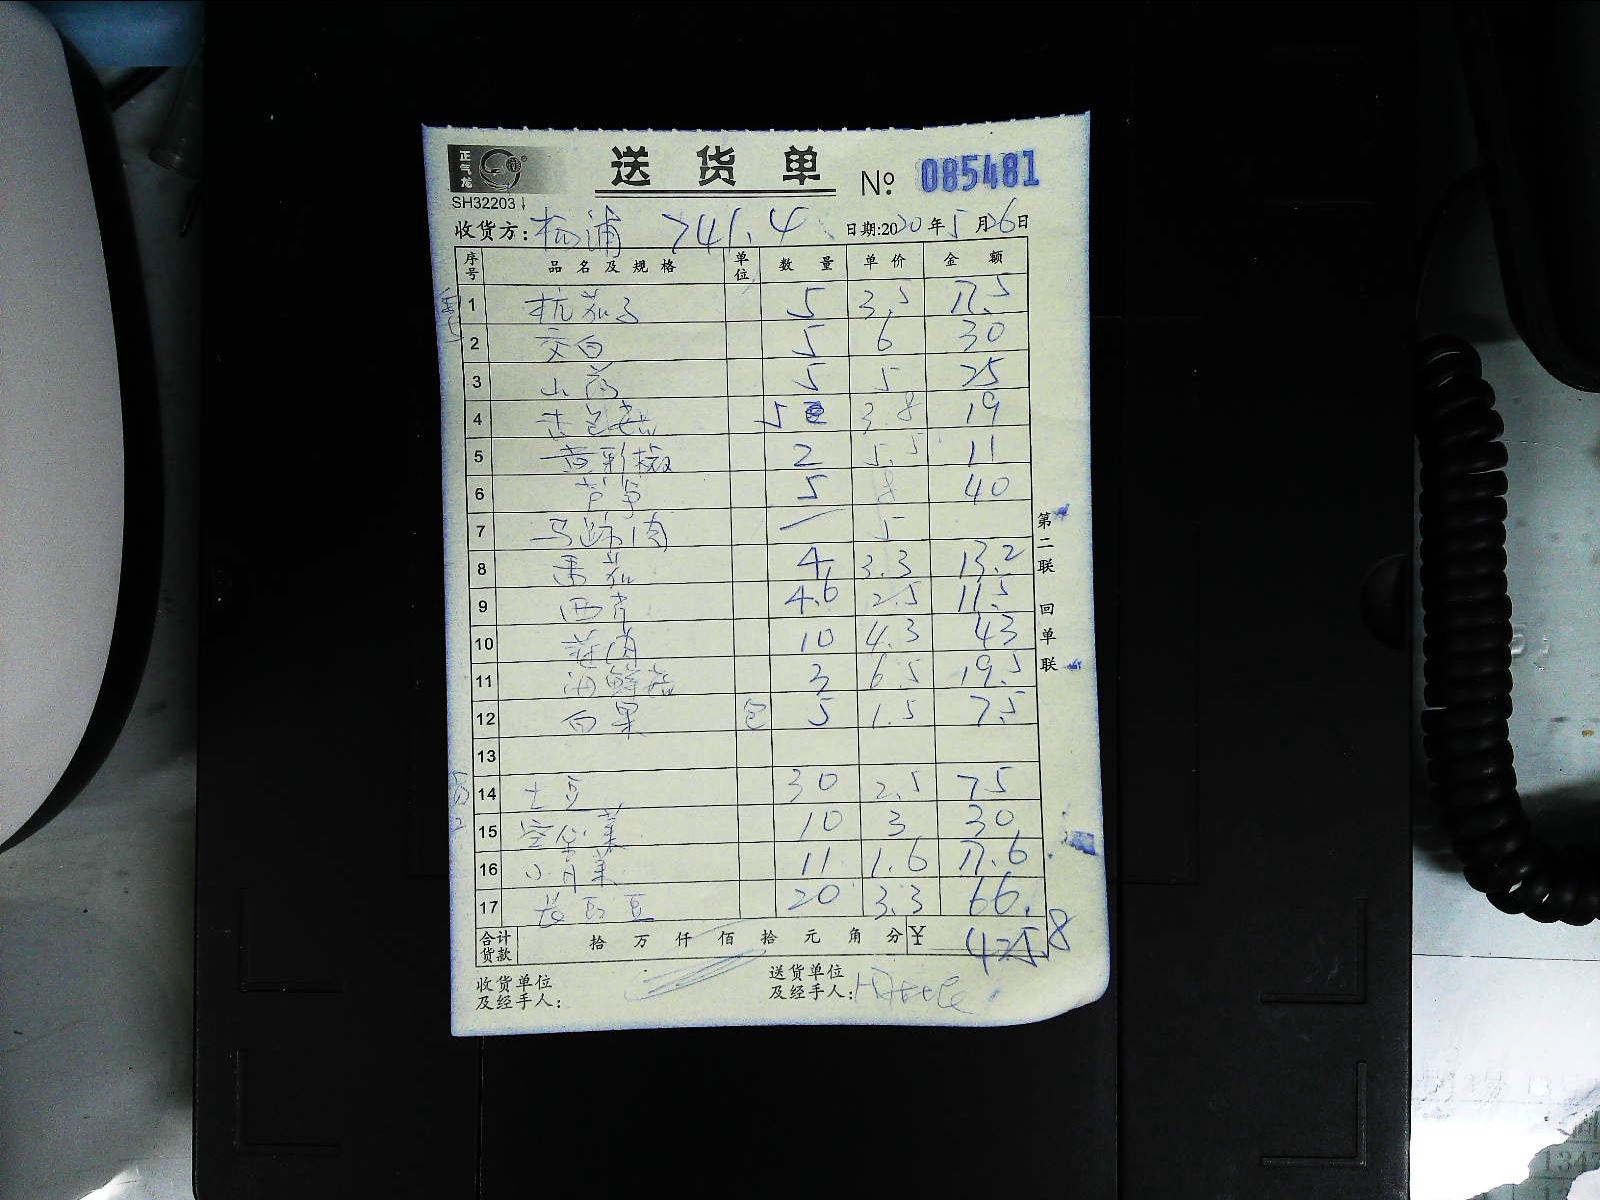 正气龙
送货单 No 085481
SH32203
收货方: 杨浦 741.4 日期:2020年5月26日
序号 品名及规格 单位 数量 单价 金额
1 杭茄子 5 3.5 17.5
2 交白 5 6 30
3 山药 5 5 25
4 杏包菇 5 3.8 19
5 黄彩椒 2 5.5 11
6 芦笋 5 8 40
7 马蹄肉 一 5
8 番茄 4 3.3 13.2
9 西芹 4.6 2.5 11.5
10 10 4.3 43
11 海鲜菇 3 6.5 19.5
12 白果 包 5 1.5 7.5
13
14 土豆 30 2.5 75
15 空心菜 10 3 30
16 小青菜 11 1.6 17.6
17 20 3.3 66.
合计货款 拾万仟佰拾元角分 ¥ 425.8
收货单位及经手人:
送货单位及经手人:
第二联 回单联
1347